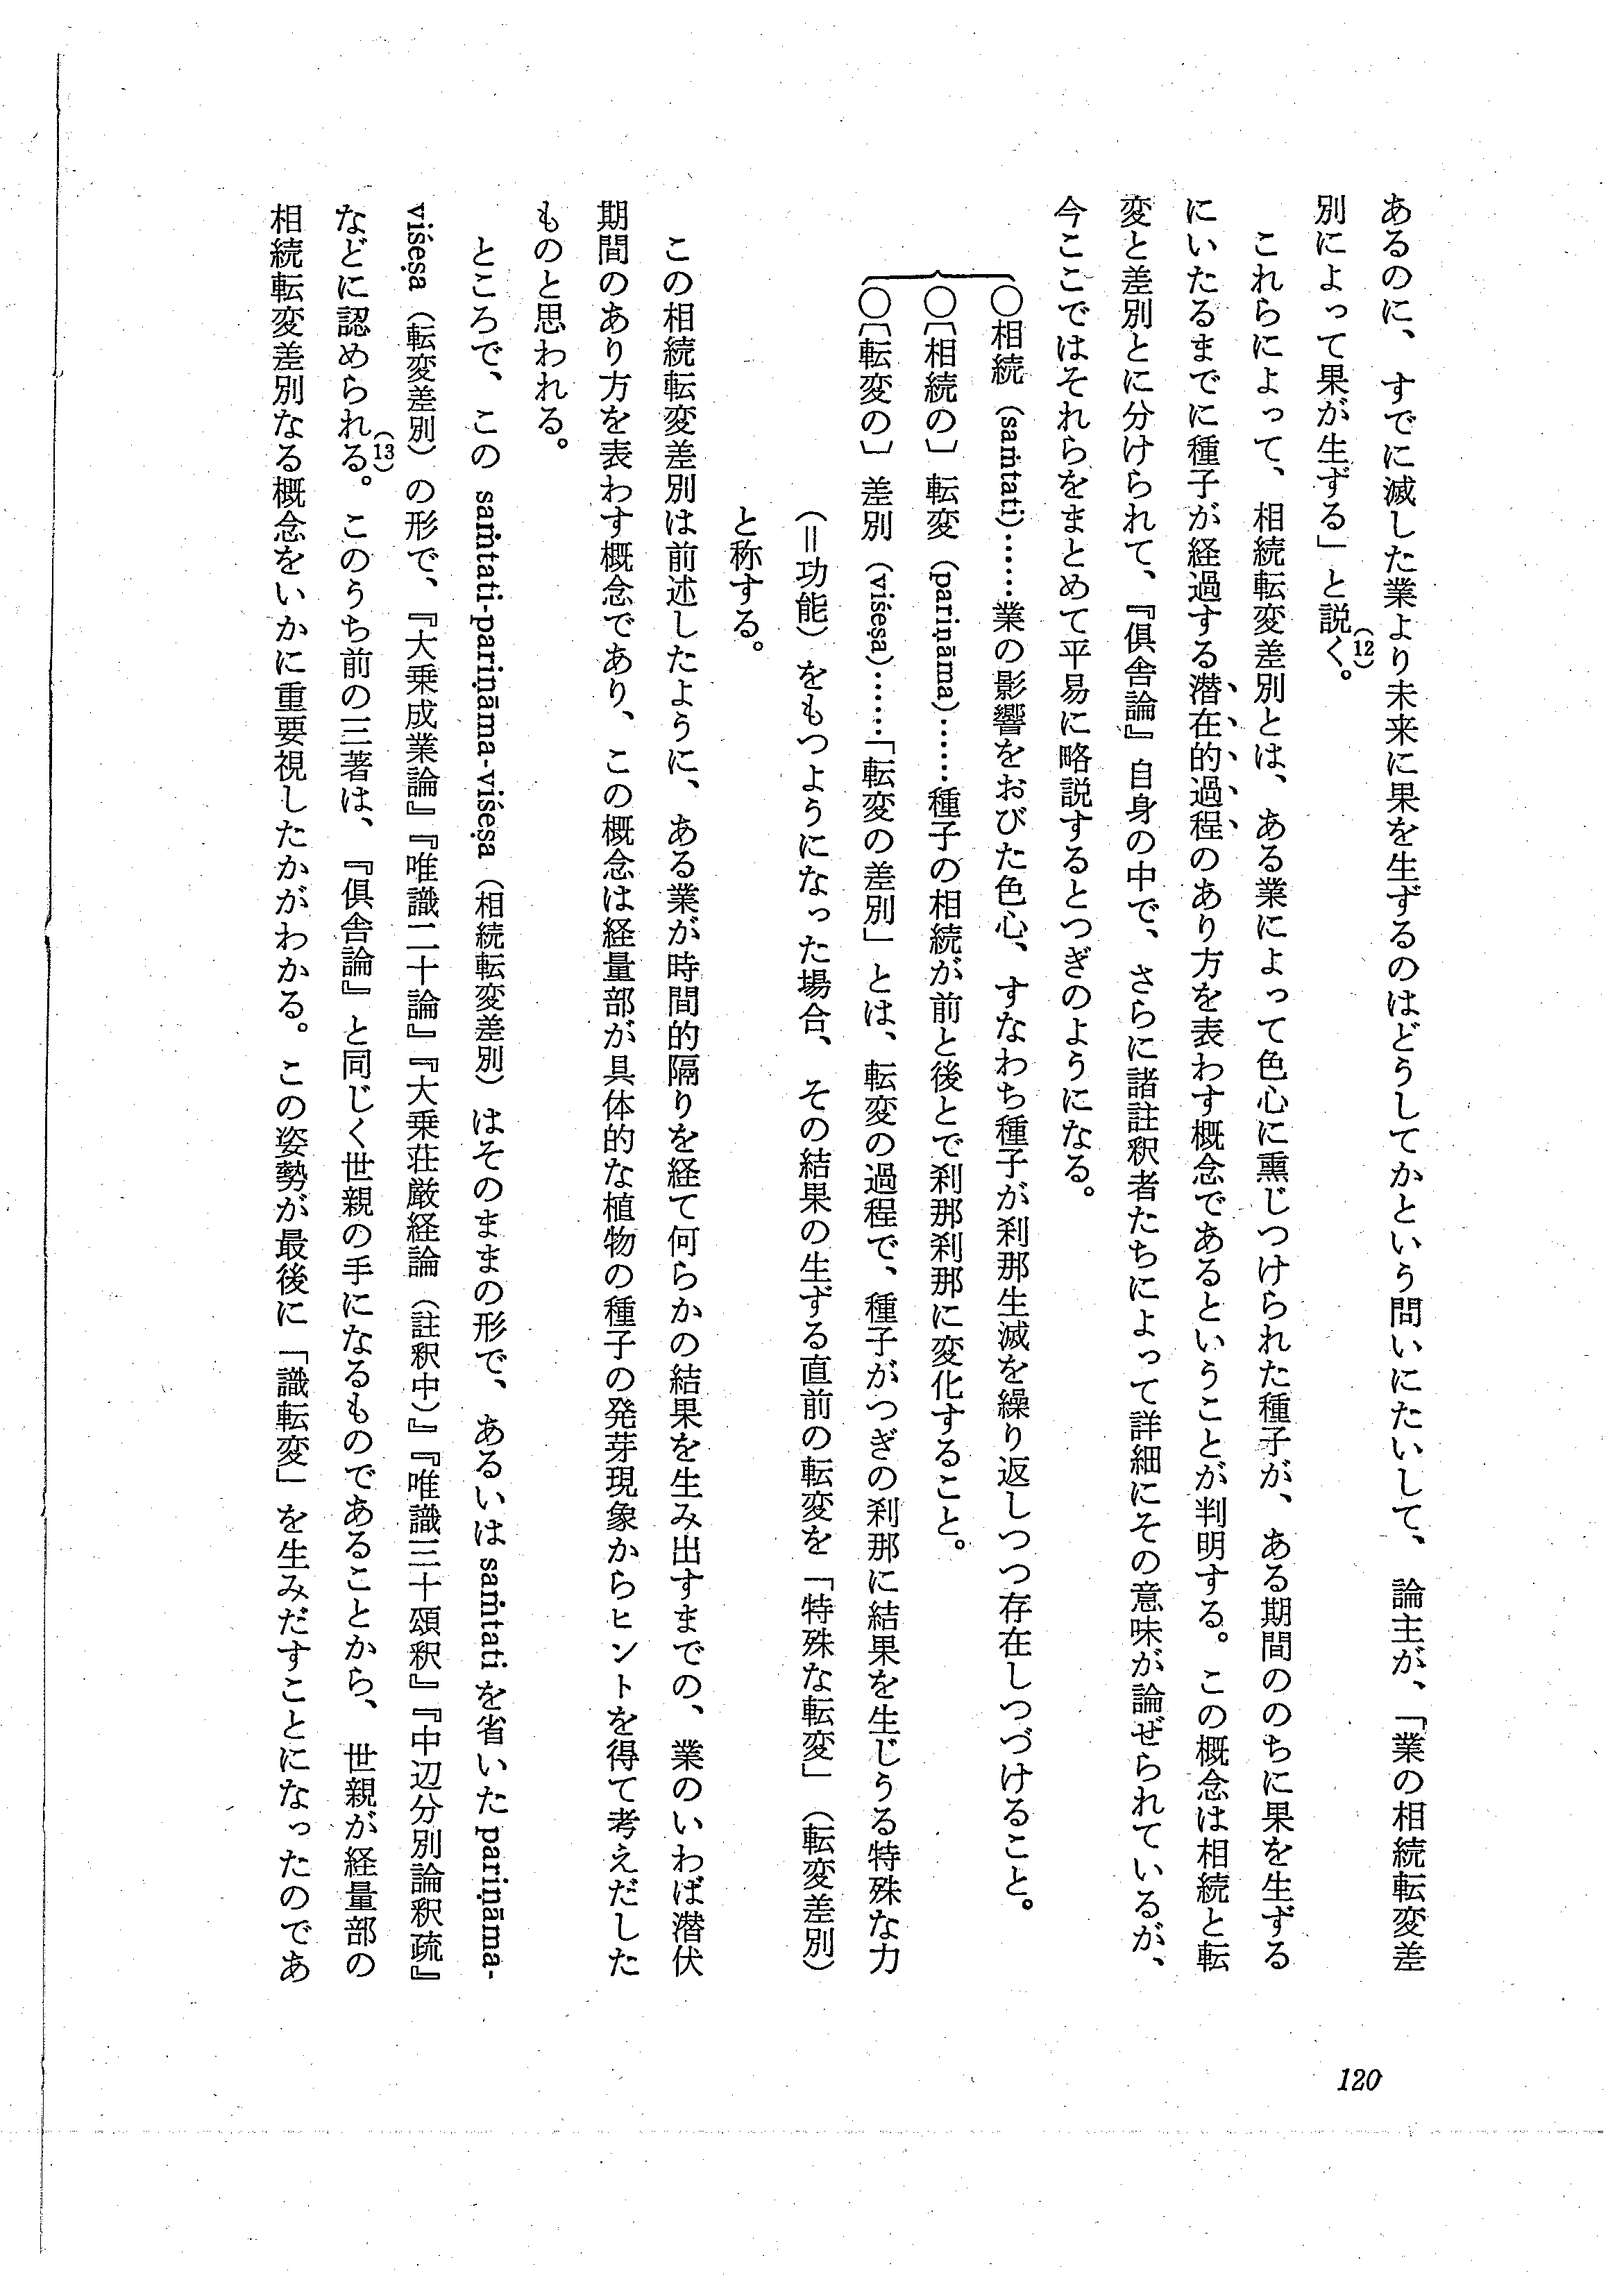 あるのに、すでに滅した業より未来に果を生ずるのはどうしてかという問いにたいして、論主が、「業の相続転変差
別によって果が生ずる」と説く。(12)
これらによって、相続転変差別とは、ある業によって色心に熏じつけられた種子が、ある期間ののちに果を生ずる
にいたるまでに種子が経過する潜在的過程のあり方を表わす概念であるということが判明する。この概念は相続と転
変と差別とに分けられて、『俱舎論』自身の中で、さらに諸註釈者たちによって詳細にその意味が論ぜられているが、
今ここではそれらをまとめて平易に略説するとつぎのようになる。
〇相続（saṁtati）……業の影響をおびた色心、すなわち種子が刹那生滅を繰り返しつつ存在しつづけること。
〇〔相続の〕転変（pariṇāma）……種子の相続が前と後とで刹那刹那に変化すること。
〇〔転変の〕差別（viśeṣa）……「転変の差別」とは、転変の過程で、種子がつぎの刹那に結果を生じうる特殊な力
（＝功能）をもつようになった場合、その結果の生ずる直前の転変を「特殊な転変」（転変差別）
と称する。
この相続転変差別は前述したように、ある業が時間的隔りを経て何らかの結果を生み出すまでの、業のいわば潜伏
期間のあり方を表わす概念であり、この概念は経量部が具体的な植物の種子の発芽現象からヒントを得て考えだした
ものと思われる。
ところで、この saṁtati-pariṇāma-viśeṣa（相続転変差別）はそのままの形で、あるいは saṁtati を省いた pariṇāma-
viśeṣa（転変差別）の形で、『大乗成業論』『唯識二十論』『大乗荘厳経論（註釈中）』『唯識三十頌釈』『中辺分別論釈疏』
などに認められる(13)。このうち前の三著は、『俱舎論』と同じく世親の手になるものであることから、世親が経量部の
相続転変差別なる概念をいかに重要視したかがわかる。この姿勢が最後に「識転変」を生みだすことになったのであ
120